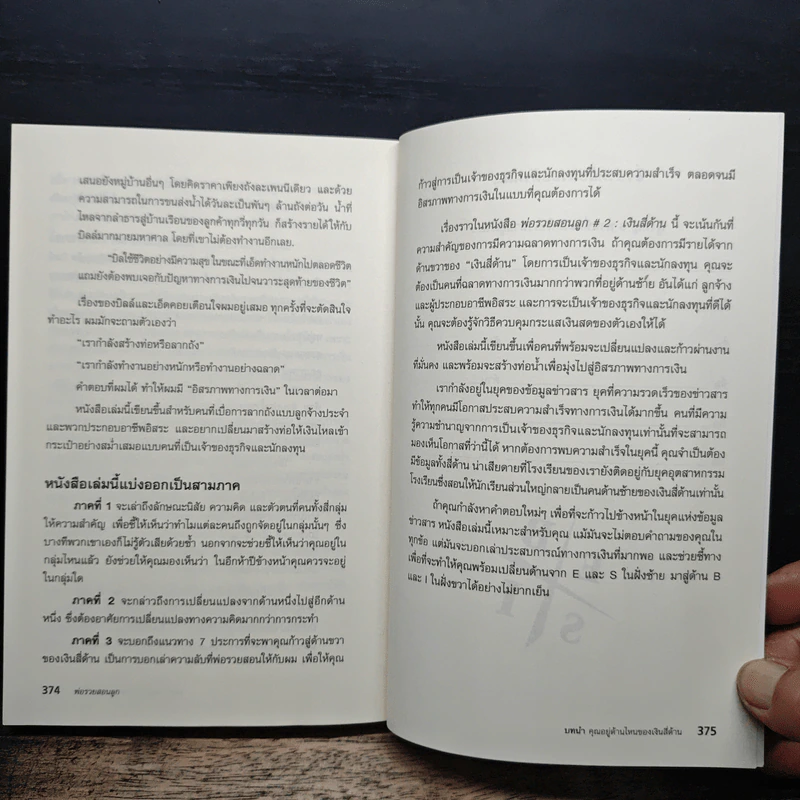 เสนอยังหมู่บ้านอื่นๆ โดยคิดราคาเพียงถังละเพนนีเดียว และด้วย
ความสามารถในการขนส่งน้ำได้วันละเป็นพันๆ ล้านถังต่อวัน น้ำที่
ไหลจากลำธารสู่บ้านเรือนของลูกค้าทุกวี่ทุกวัน ก็สร้างรายได้ให้กับ
บิลล์มากมายมหาศาล โดยที่เขาไม่ต้องทำงานอีกเลย.
“บิลใช้ชีวิตอย่างมีความสุข ในขณะที่เอ็ดทำงานหนักไปตลอดชีวิต
แถมยังต้องพบเจอกับปัญหาทางการเงินไปจนวาระสุดท้ายของชีวิต”
เรื่องของบิลล์และเอ็ดคอยเตือนใจผมอยู่เสมอ ทุกครั้งที่จะตัดสินใจ
ทำอะไร ผมมักจะถามตัวเองว่า
“เรากำลังสร้างท่อหรือลากถัง”
“เรากำลังทำงานอย่างหนักหรือทำงานอย่างฉลาด”
คำตอบที่ผมได้ ทำให้ผมมี “อิสรภาพทางการเงิน” ในเวลาต่อมา
หนังสือเล่มนี้เขียนขึ้นสำหรับคนที่เบื่อการลากถังแบบลูกจ้างประจำ
และพวกประกอบอาชีพอิสระ และอยากเปลี่ยนมาสร้างท่อให้เงินไหลเข้า
กระเป๋าอย่างสม่ำเสมอแบบคนที่เป็นเจ้าของธุรกิจและนักลงทุน
หนังสือเล่มนี้แบ่งออกเป็นสามภาค
ภาคที่ 1 จะเล่าถึงลักษณะนิสัย ความคิด และตัวตนที่คนทั้งสี่กลุ่ม
ให้ความสำคัญ เพื่อชี้ให้เห็นว่าทำไมแต่ละคนถึงถูกจัดอยู่ในกลุ่มนั้นๆ ซึ่ง
บางทีพวกเขาเองก็ไม่รู้ตัวเสียด้วยซ้ำ นอกจากจะช่วยชี้ให้เห็นว่าคุณอยู่ใน
กลุ่มไหนแล้ว ยังช่วยให้คุณมองเห็นว่า ในอีกห้าปีข้างหน้าคุณควรจะอยู่
ในกลุ่มใด
ภาคที่ 2 จะกล่าวถึงการเปลี่ยนแปลงจากด้านหนึ่งไปสู่อีกด้าน
หนึ่ง ซึ่งต้องอาศัยการเปลี่ยนแปลงทางความคิดมากกว่าการกระทำ
ภาคที่ 3 จะบอกถึงแนวทาง 7 ประการที่จะพาคุณก้าวสู่ด้านขวา
ของเงินสี่ด้าน เป็นการบอกเล่าความลับที่พ่อรวยสอนให้กับผม เพื่อให้คุณ
374 พ่อรวยสอนลูก
ก้าวสู่การเป็นเจ้าของธุรกิจและนักลงทุนที่ประสบความสำเร็จ ตลอดจนมี
อิสรภาพทางการเงินในแบบที่คุณต้องการได้
เรื่องราวในหนังสือ พ่อรวยสอนลูก # 2 : เงินสี่ด้าน นี้ จะเน้นกันที่
ความสำคัญของการมีความฉลาดทางการเงิน ถ้าคุณต้องการมีรายได้จาก
ด้านขวาของ “เงินสี่ด้าน” โดยการเป็นเจ้าของธุรกิจและนักลงทุน คุณจะ
ต้องเป็นคนที่ฉลาดทางการเงินมากกว่าพวกที่อยู่ด้านซ้าย อันได้แก่ ลูกจ้าง
และผู้ประกอบอาชีพอิสระ และการจะเป็นเจ้าของธุรกิจและนักลงทุนที่ดีได้
นั้น คุณจะต้องรู้จักวิธีควบคุมกระแสเงินสดของตัวเองให้ได้
หนังสือเล่มนี้เขียนขึ้นเพื่อคนที่พร้อมจะเปลี่ยนแปลงและก้าวผ่านงาน
ที่มั่นคง และพร้อมจะสร้างท่อน้ำเพื่อมุ่งไปสู่อิสรภาพทางการเงิน
เรากำลังอยู่ในยุคของข้อมูลข่าวสาร ยุคที่ความรวดเร็วของข่าวสาร
ทำให้ทุกคนมีโอกาสประสบความสำเร็จทางการเงินได้มากขึ้น คนที่มีความ
รู้ความชำนาญจากการเป็นเจ้าของธุรกิจและนักลงทุนเท่านั้นที่จะสามารถ
มองเห็นโอกาสที่ว่านี้ได้ หากต้องการพบความสำเร็จในยุคนี้ คุณจำเป็นต้อง
มีข้อมูลทั้งสี่ด้าน น่าเสียดายที่โรงเรียนของเรายังติดอยู่กับยุคอุตสาหกรรม
โรงเรียนซึ่งสอนให้นักเรียนส่วนใหญ่กลายเป็นคนด้านซ้ายของเงินสี่ด้านเท่านั้น
ถ้าคุณกำลังหาคำตอบใหม่ๆ เพื่อที่จะก้าวไปข้างหน้าในยุคแห่งข้อมูล
ข่าวสาร หนังสือเล่มนี้เหมาะสำหรับคุณ แม้มันจะไม่ตอบคำถามของคุณใน
ทุกข้อ แต่มันจะบอกเล่าประสบการณ์ทางการเงินที่มากพอ และช่วยชี้ทาง
เพื่อที่จะทำให้คุณพร้อมเปลี่ยนด้านจาก E และ S ในฝั่งซ้าย มาสู่ด้าน B
และ I ในฝั่งขวาได้อย่างไม่ยากเย็น
บทนำ คุณอยู่ด้านไหนของเงินสี่ด้าน 375